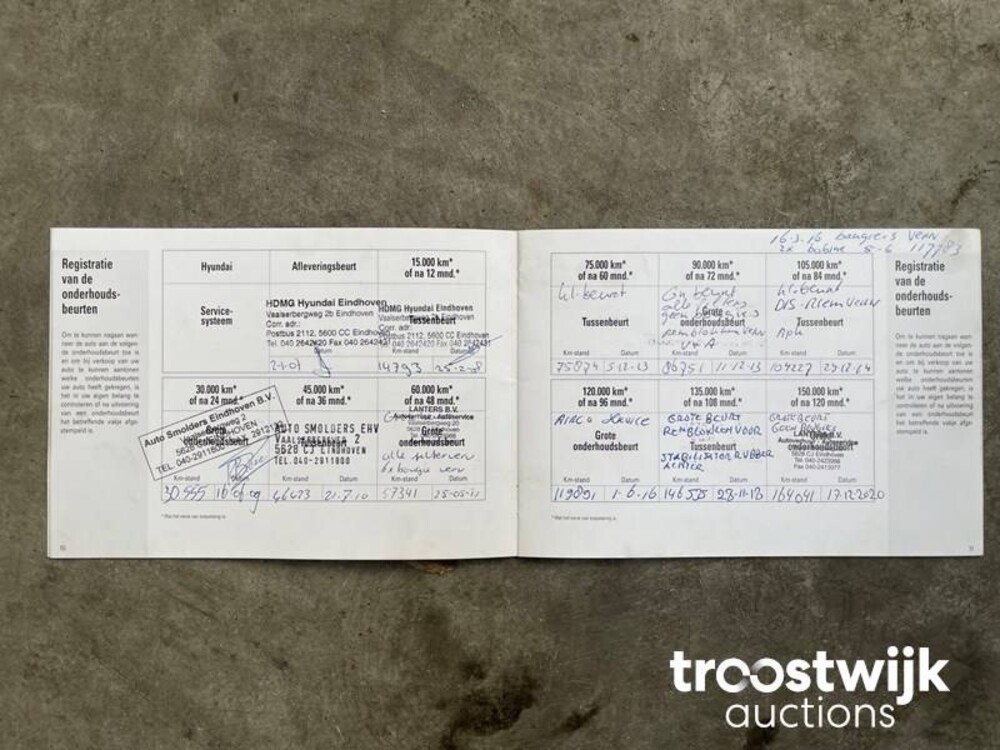 Registratie
van de
onderhouds-
beurten
Om te kunnen nagaan wan-
neer de auto aan de volgen-
de onderhoudsbeurt toe is
en om bij verkoop van uw
auto te kunnen aantonen
welke onderhoudsbeurten
uw auto heeft gekregen, is
het in uw eigen belang te
controleren of na uitvoering
van een onderhoudsbeurt
het betreffende vakje afge-
stempeld is.
Hyundai
Afleveringsbeurt
15.000 km*
of na 12 mnd.*
Service-
systeem
HDMG Hyundai Eindhoven
Vaalserbergweg 2b Eindhoven
Corr. adr.:
Postbus 2112, 5600 CC Eindhoven
Tel. 040 2642420 Fax 040 2642421
HDMG Hyundai Eindhoven
Tussenbeurt
Corr. adr.:
Postbus 2112, 5600 CC Eindhoven
Tel. 040 2642420 Fax 040 2642431
Datum
Km-stand
Datum
14793
25-2-08
30.000 km*
of na 24 mnd.*
45.000 km*
of na 36 mnd.*
60.000 km*
of na 48 mnd.*
Auto Smolders Eindhoven B.V.
5628 EINDHOVEN
TEL. 040-2911800
Grote
onderhoudsbeurt
AUTO SMOLDERS EHV
VAALSERBERGWEG 2
5628 CJ EINDHOVEN
TEL.040-2911800
Tussenbeurt
LANTERS B.V.
Grote
onderhoudsbeurt
alle filters ver
6x bougie ver
Km-stand
Datum
Km-stand
Datum
Km-stand
Datum
46473
21-7-10
57341
25-05-11
* Wat het eerst van toepassing is.
10
16-3-16 bougies Vern
2x bobine 5-6 117783
75.000 km*
of na 60 mnd.*
90.000 km*
of na 72 mnd.*
105.000 km*
of na 84 mnd.*
kl-beurt
Gr beurt
alle filters
geen bougies
remblokken Vern
V+A
kl-beurt
DIS-Riem Vern
Apk
Tussenbeurt
Grote
onderhoudsbeurt
Tussenbeurt
Km-stand
Datum
Km-stand
Datum
Km-stand
Datum
75874
5-12-13
86751
11-12-13
104227
120.000 km*
of na 96 mnd.*
135.000 km*
of na 108 mnd.*
150.000 km*
of na 120 mnd.*
AIRCO SERVICE
GROTE BEURT
REMBLOKKEN VOOR
STABILISATOR RUBBER
ACHTER
GROTE BEURT
GEEN BOUGIES
LANTERS B.V.
5628 CJ Eindhoven
Tel. 040-2422988
Fax 040-2413077
Grote
onderhoudsbeurt
Tussenbeurt
Grote
onderhoudsbeurt
Km-stand
Datum
Km-stand
Datum
Km-stand
Datum
119891
1-6-16
146535
28-11-18
164041
17-12-2020
* Wat het eerst van toepassing is.
11
Registratie
van de
onderhouds-
beurten
Om te kunnen nagaan wan-
neer de auto aan de volgen-
de onderhoudsbeurt toe is
en om bij verkoop van uw
auto te kunnen aantonen
welke onderhoudsbeurten
uw auto heeft gekregen, is
het in uw eigen belang te
controleren of na uitvoering
van een onderhoudsbeurt
het betreffende vakje afge-
stempeld is.
troostwijk
auctions